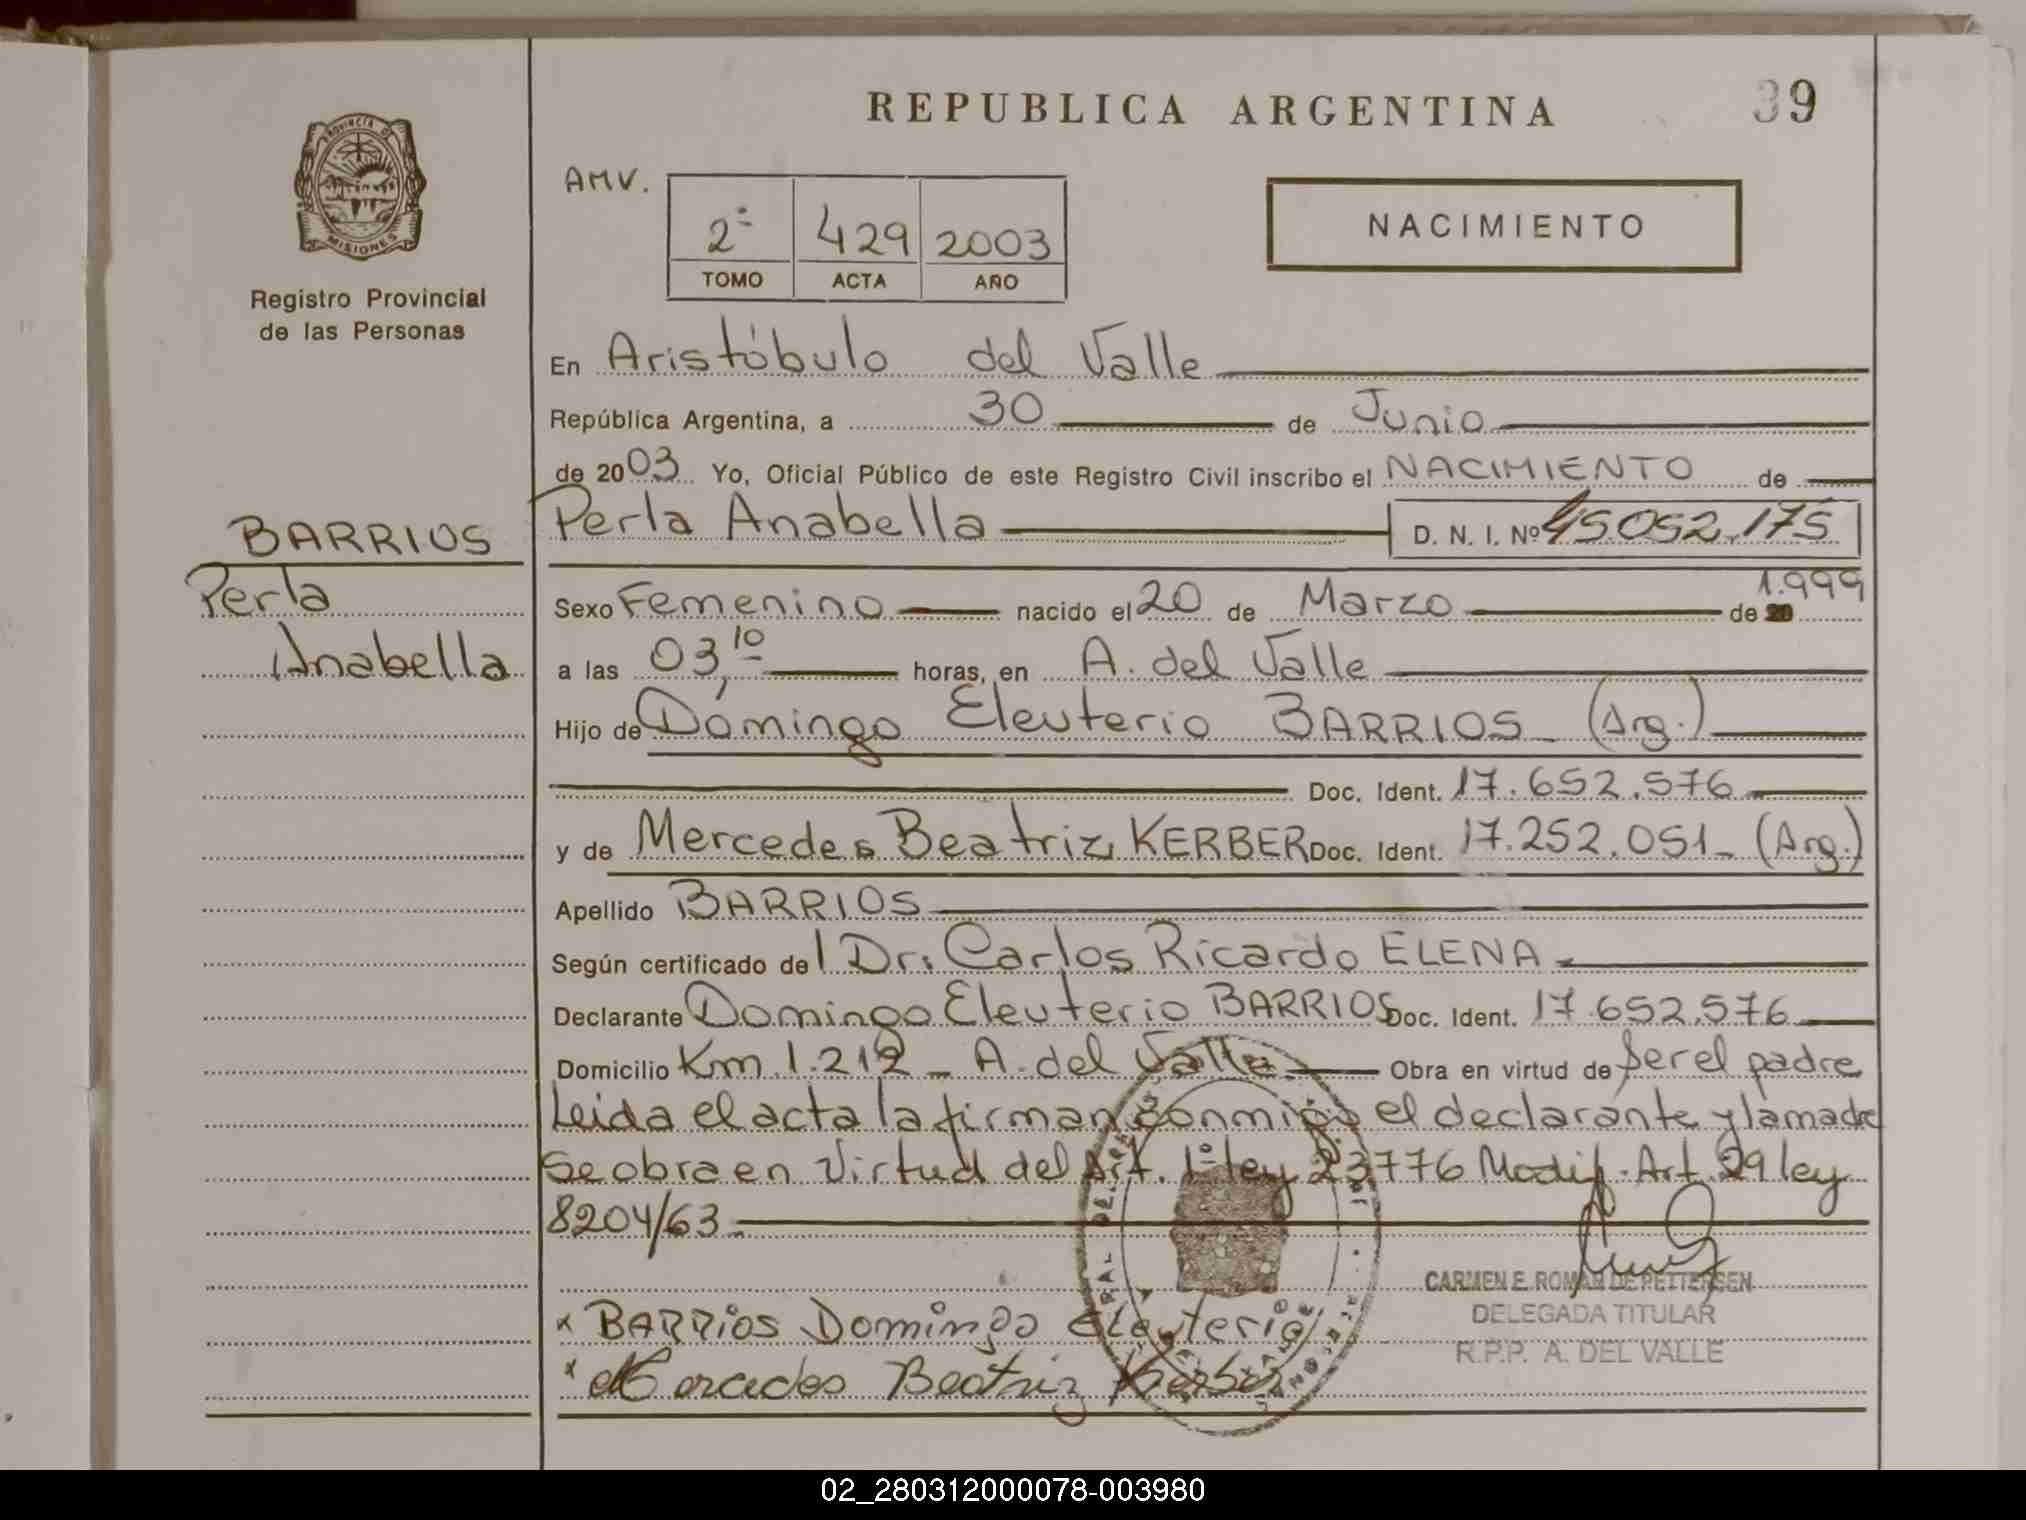 REPUBLICA ARGENTINA
39
PROVINCIA DE
MISIONES
Registro Provincial
de las Personas
AMV.
2º 429 2003
TOMO ACTA AÑO
NACIMIENTO
En Aristóbulo del Valle
República Argentina, a 30 de Junio
de 2003 Yo, Oficial Público de este Registro Civil inscribo el NACIMIENTO de
Perla Anabella D. N. I. Nº 45.052.175
BARRIOS
Perla
Anabella
Sexo Femenino nacido el 20 de Marzo de 20 1.999
a las 03,10 horas, en A. del Valle
Hijo de Domingo Eleuterio BARRIOS (Arg.)
Doc. Ident. 17.652.576
y de Mercedes Beatriz KERBER Doc. Ident. 17.252.051 (Arg.)
Apellido BARRIOS
Según certificado del Dr. Carlos Ricardo ELENA
Declarante Domingo Eleuterio BARRIOS Doc. Ident. 17.652.576
Domicilio Km 1.212 - A. del Valle Obra en virtud de ser el padre
Leida el acta la firman conmigo el declarante y la madre
Se obra en virtud del Art. 1º ley 23776 Modif. Art. 29 ley
8204/63
CARMEN E. ROMAN DE PETTERSEN
DELEGADA TITULAR
R.P.P. A. DEL VALLE
x BARRios Domingo Eleuterio
x Mercedes Beatriz Kerber
02_280312000078-003980